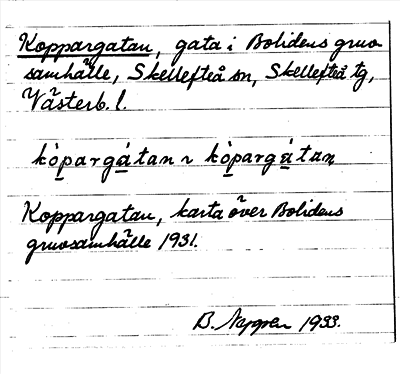 Koppargatan, gata i Bolidens gruv
samhälle, Skellefteå sn, Skellefteå tg,
Västerb. l.
kò̱pargá̱tan ~ kò̱pargá̱tan
Koppargatan, karta över Bolidens
gruvsamhälle 1931.
B. Nygren 1933.